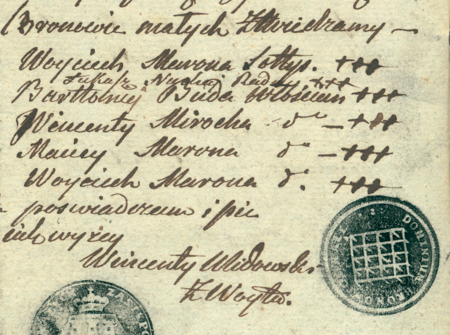 Bronowic małych Zświedzamy —
Woyciech Marona Sołtys. +++
Łukasz Radny +++
Bartłomiej Buda +++
Wincenty Mirocha d° — +++
Maciey Marona d° — +++
Woyciech Marona d°. +++
poswiadczam i pie
wyżey
Wincenty Widowski
Z Woyta.